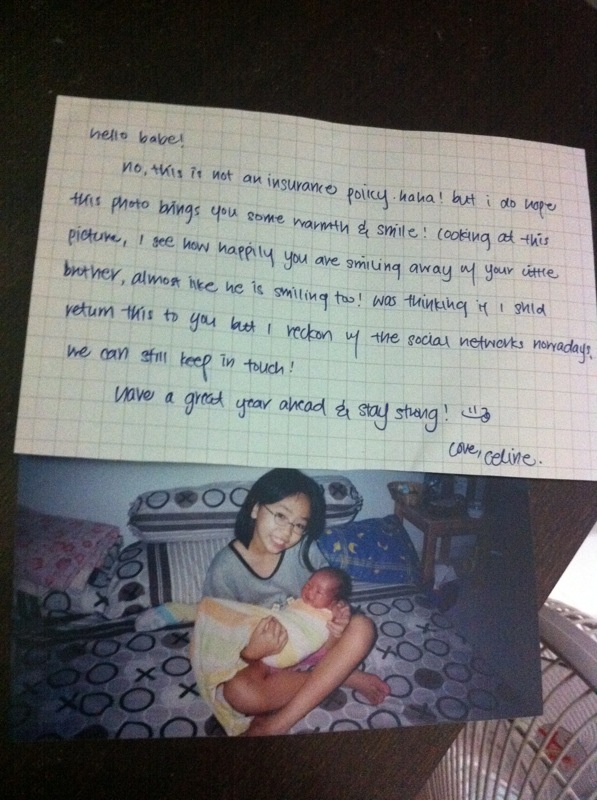 hello babe!
no, this is not an insurance policy. haha! but i do hope
this photo brings you some warmth & smile! Looking at this
picture, I see how happily you are smiling away w/ your little
brother, almost like he is smiling too! was thinking if I shld
return this to you but I reckon w/ the social networks nowadays,
we can still keep in touch!
Have a great year ahead & stay strong!
Love, Celine.